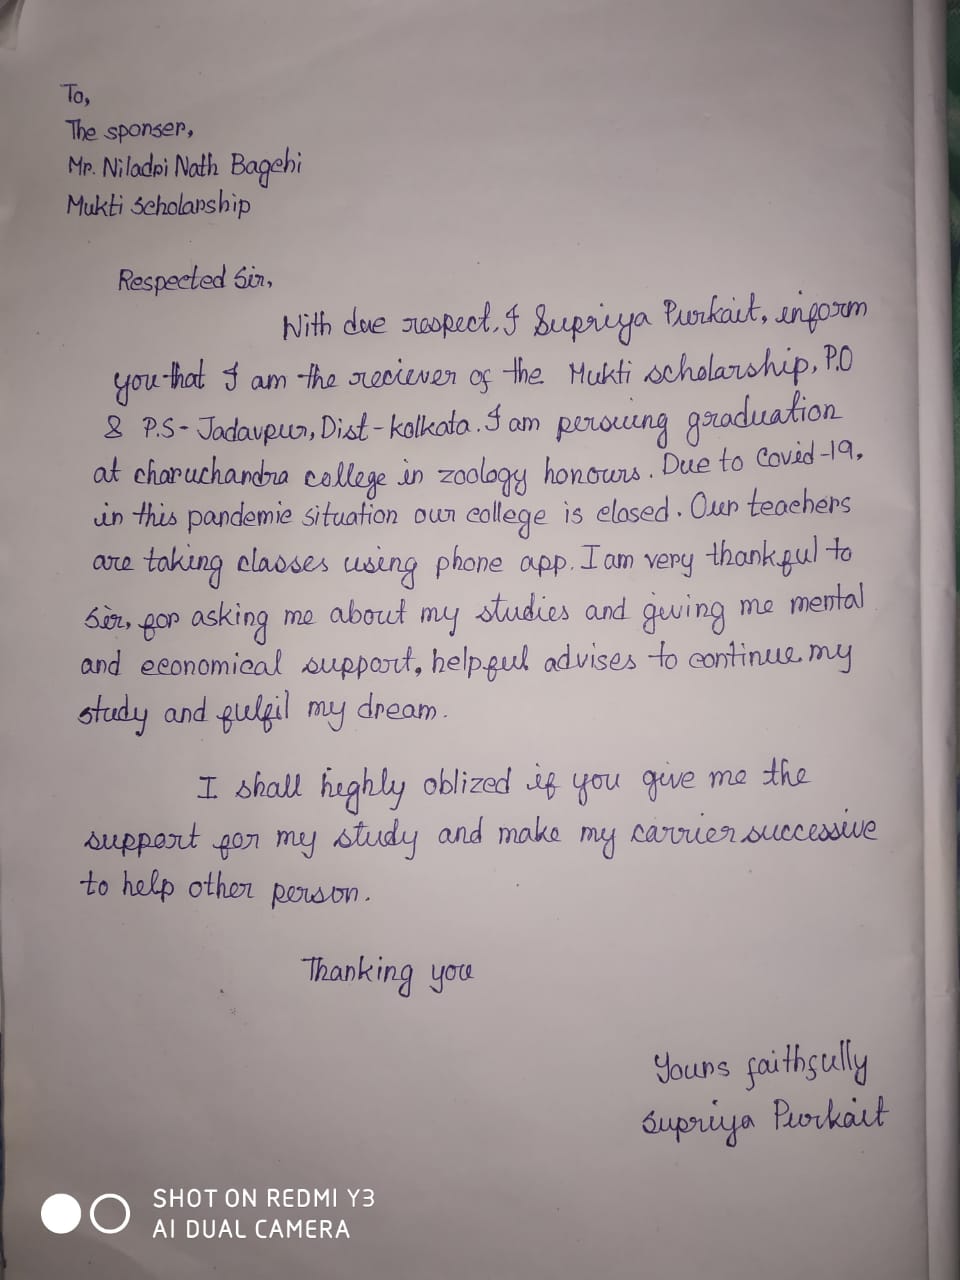 To,
The sponser,
Mr. Niladri Nath Bagchi
Mukti Scholarship
Respected Sir,
With due respect, I Supriya Purkait, inform
you that I am the reciever of the Mukti scholarship, P.O
& P.S- Jadavpur, Dist-kolkata. I am persuing graduation
at charuchandra college in zoology honours. Due to Covid-19,
in this pandemic situation our college is closed. Our teachers
are taking classes using phone app. I am very thankful to
Sir, for asking me about my studies and giving me mental
and economical support, helpful advises to continue my
study and fulfil my dream.
I shall highly oblized if you give me the
support for my study and make my carrier successive
to help other person.
Thanking you
Yours faithfully
Supriya Purkait
SHOT ON REDMI Y3
AI DUAL CAMERA